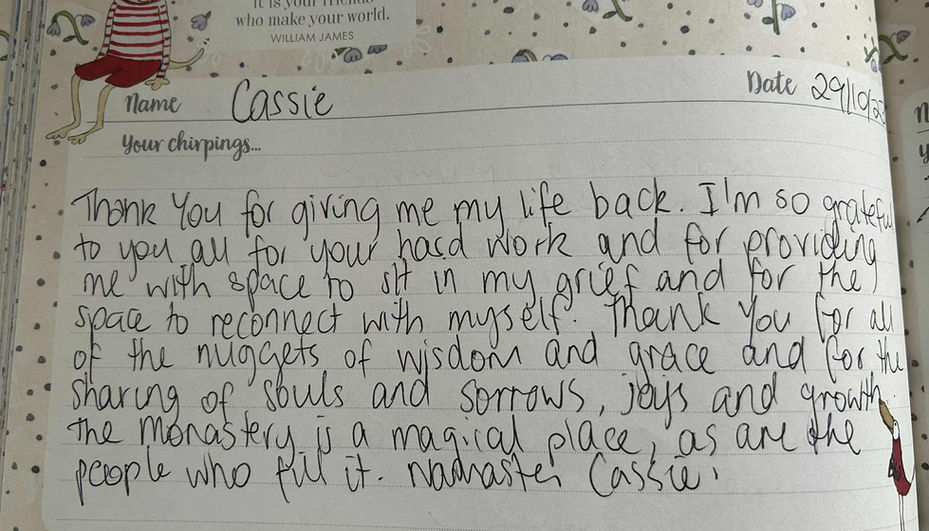 It is your friends
who make your world.
WILLIAM JAMES
Name Cassie
Date 29/10/22
Your chirpings...
Thank You for giving me my life back. I'm so grateful
to you all for your hard work and for providing
me with space to sit in my grief and for the
space to reconnect with myself. Thank You for all
of the nuggets of wisdom and grace and for the
sharing of souls and sorrows, joys and growth.
The Monastery is a magical place, as are the
people who fill it. Namaste, Cassie.